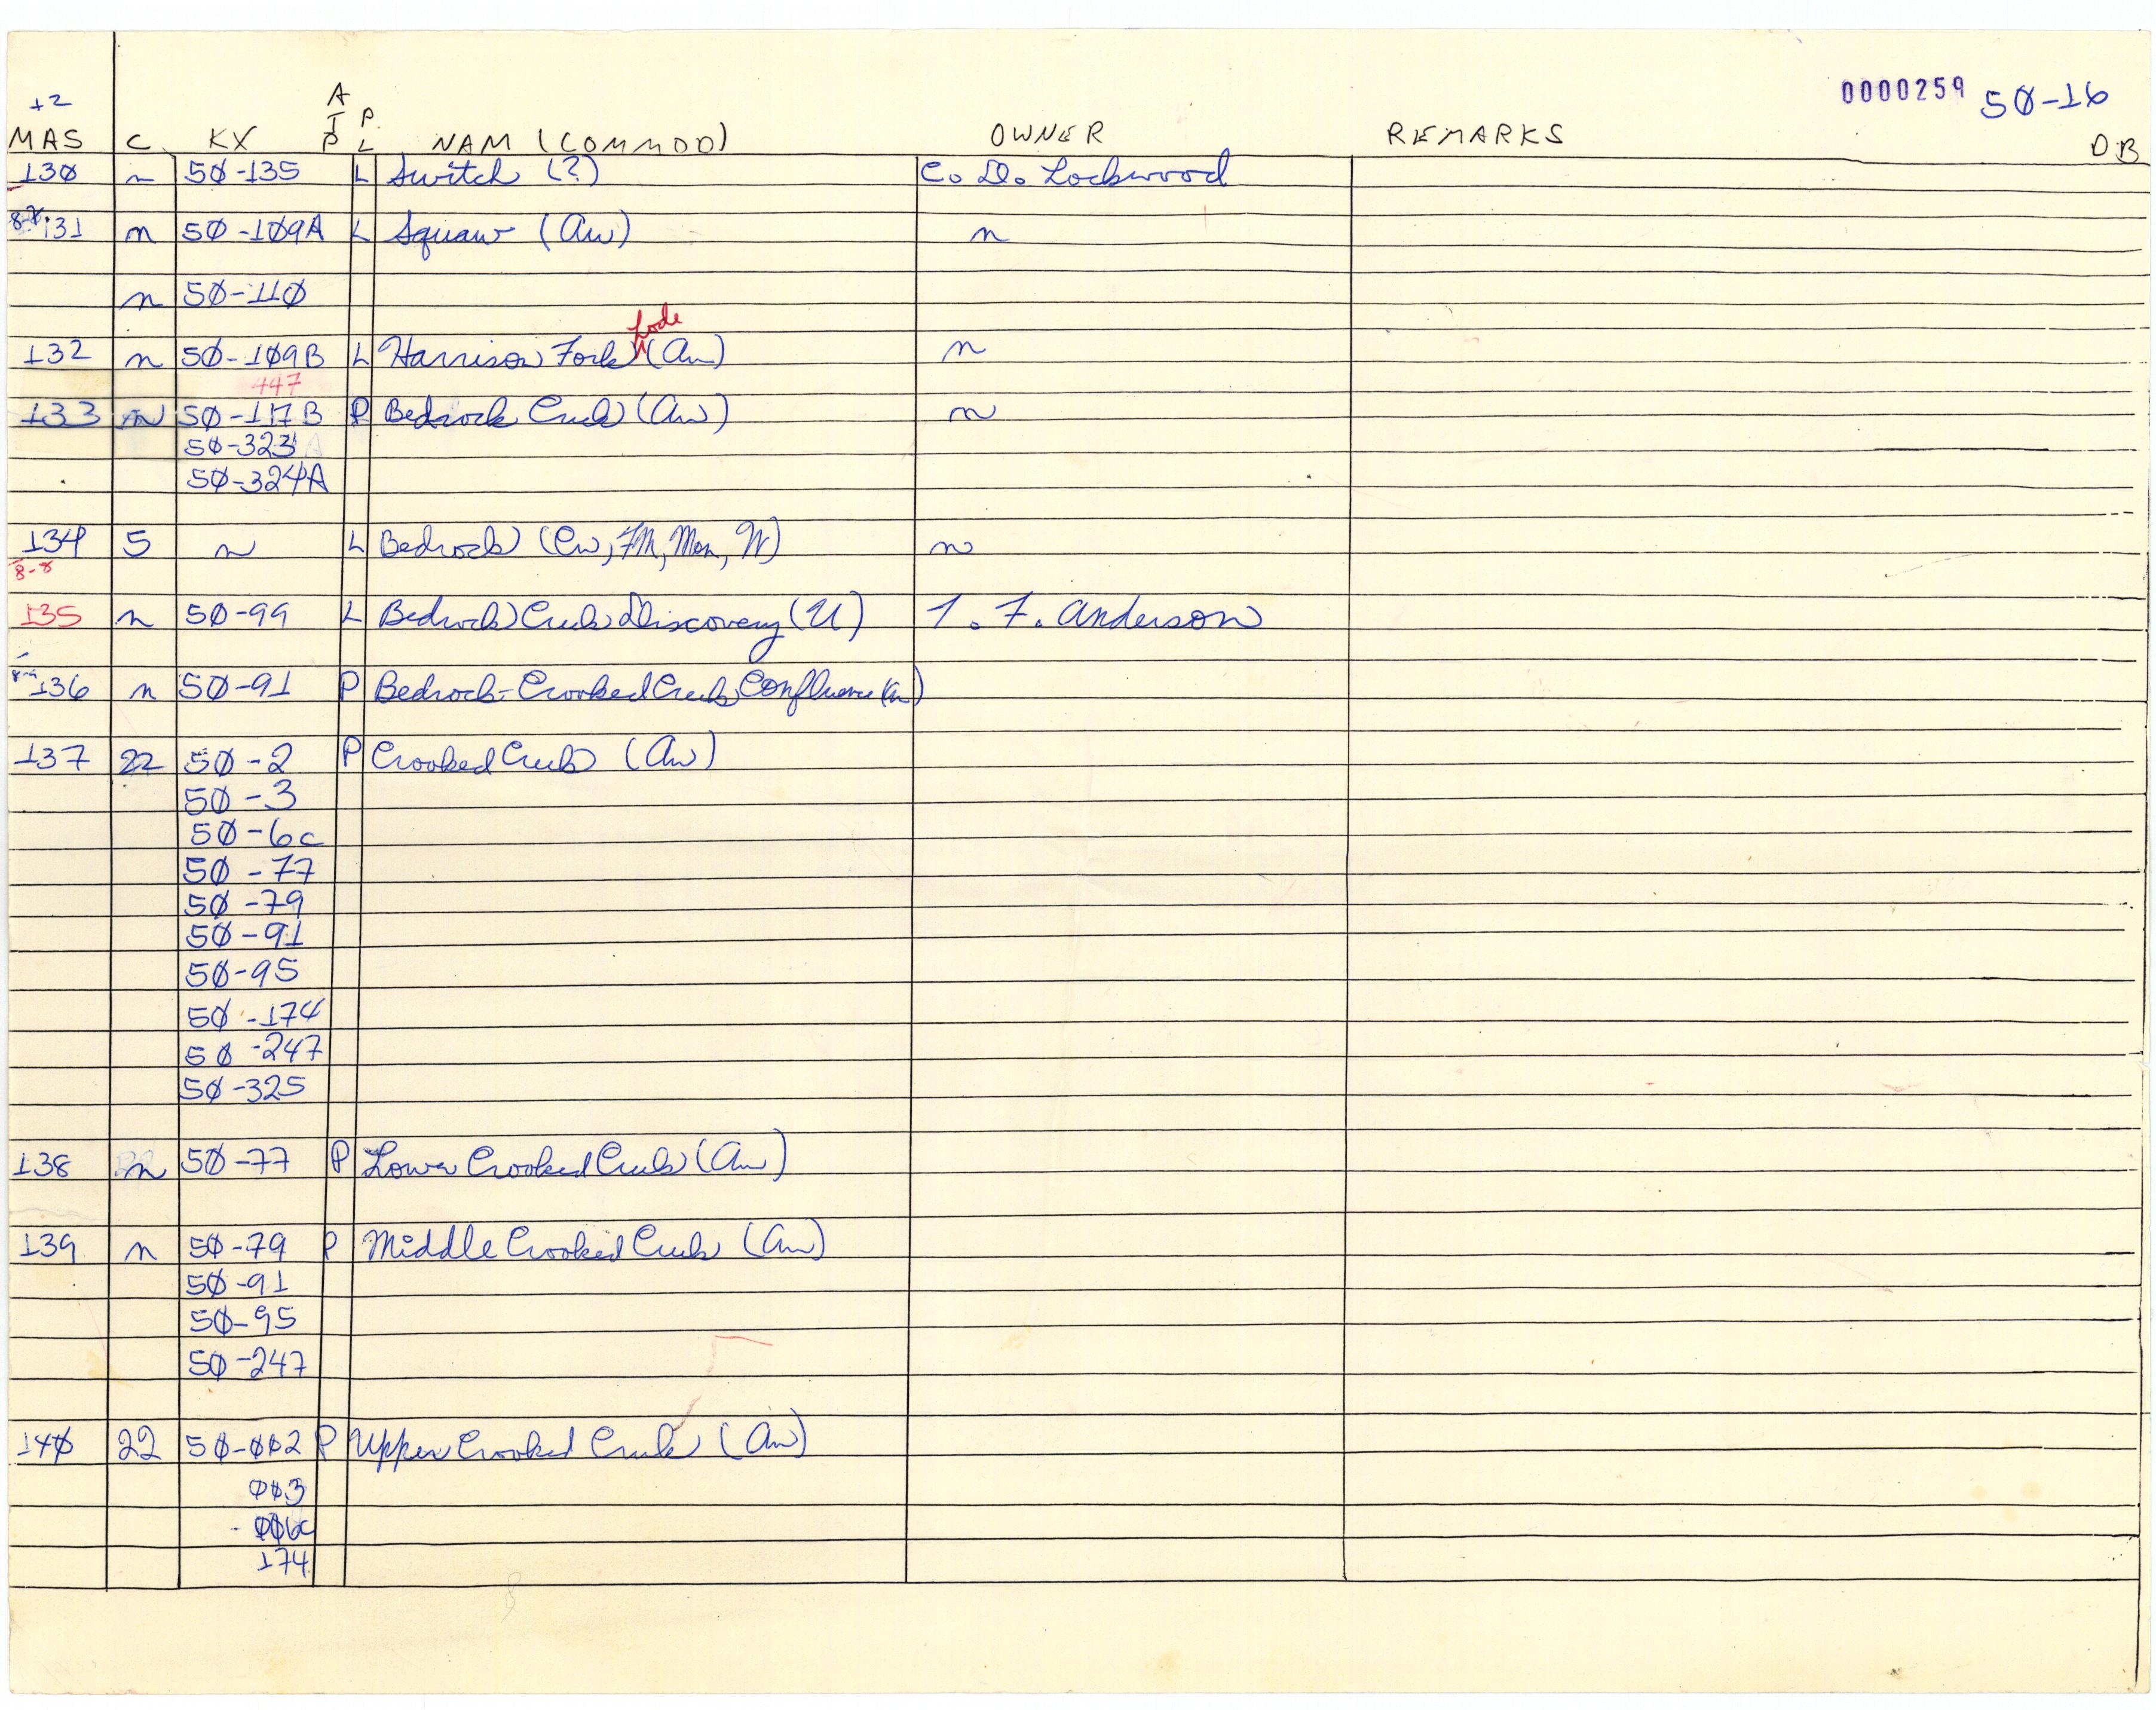 0000259 5Ø-16
+2
MAS C KX ATP PL NAM (COMMOD) OWNER REMARKS DB
13Ø n 5Ø-135 L Switch (?) C. D. Lockwood
131 n 5Ø-1Ø9A L Squaw (Au) n
n 5Ø-11Ø
Lode
132 n 5Ø-1Ø9B L Harrison Fork (Au) n
447
133 n 5Ø-117B P Bedrock Creek (Au) n
5Ø-323
5Ø-324A
134 5 n L Bedrock (Cu, FM, Mon, W) n
8-8
135 n 5Ø-99 L Bedrock Creek Discovery (U) T. F. Anderson
136 n 5Ø-91 P Bedrock-Crooked Creek Confluence (Au)
137 22 5Ø-2 P Crooked Creek (Au)
5Ø-3
5Ø-6c
5Ø-77
5Ø-79
5Ø-91
5Ø-95
5Ø-174
5Ø-247
5Ø-325
138 n 5Ø-77 P Lower Crooked Creek (Au)
139 n 5Ø-79 P Middle Crooked Creek (Au)
5Ø-91
5Ø-95
5Ø-247
14Ø 22 5Ø-ØØ2 P Upper Crooked Creek (Au)
ØØ3
ØØ6c
174